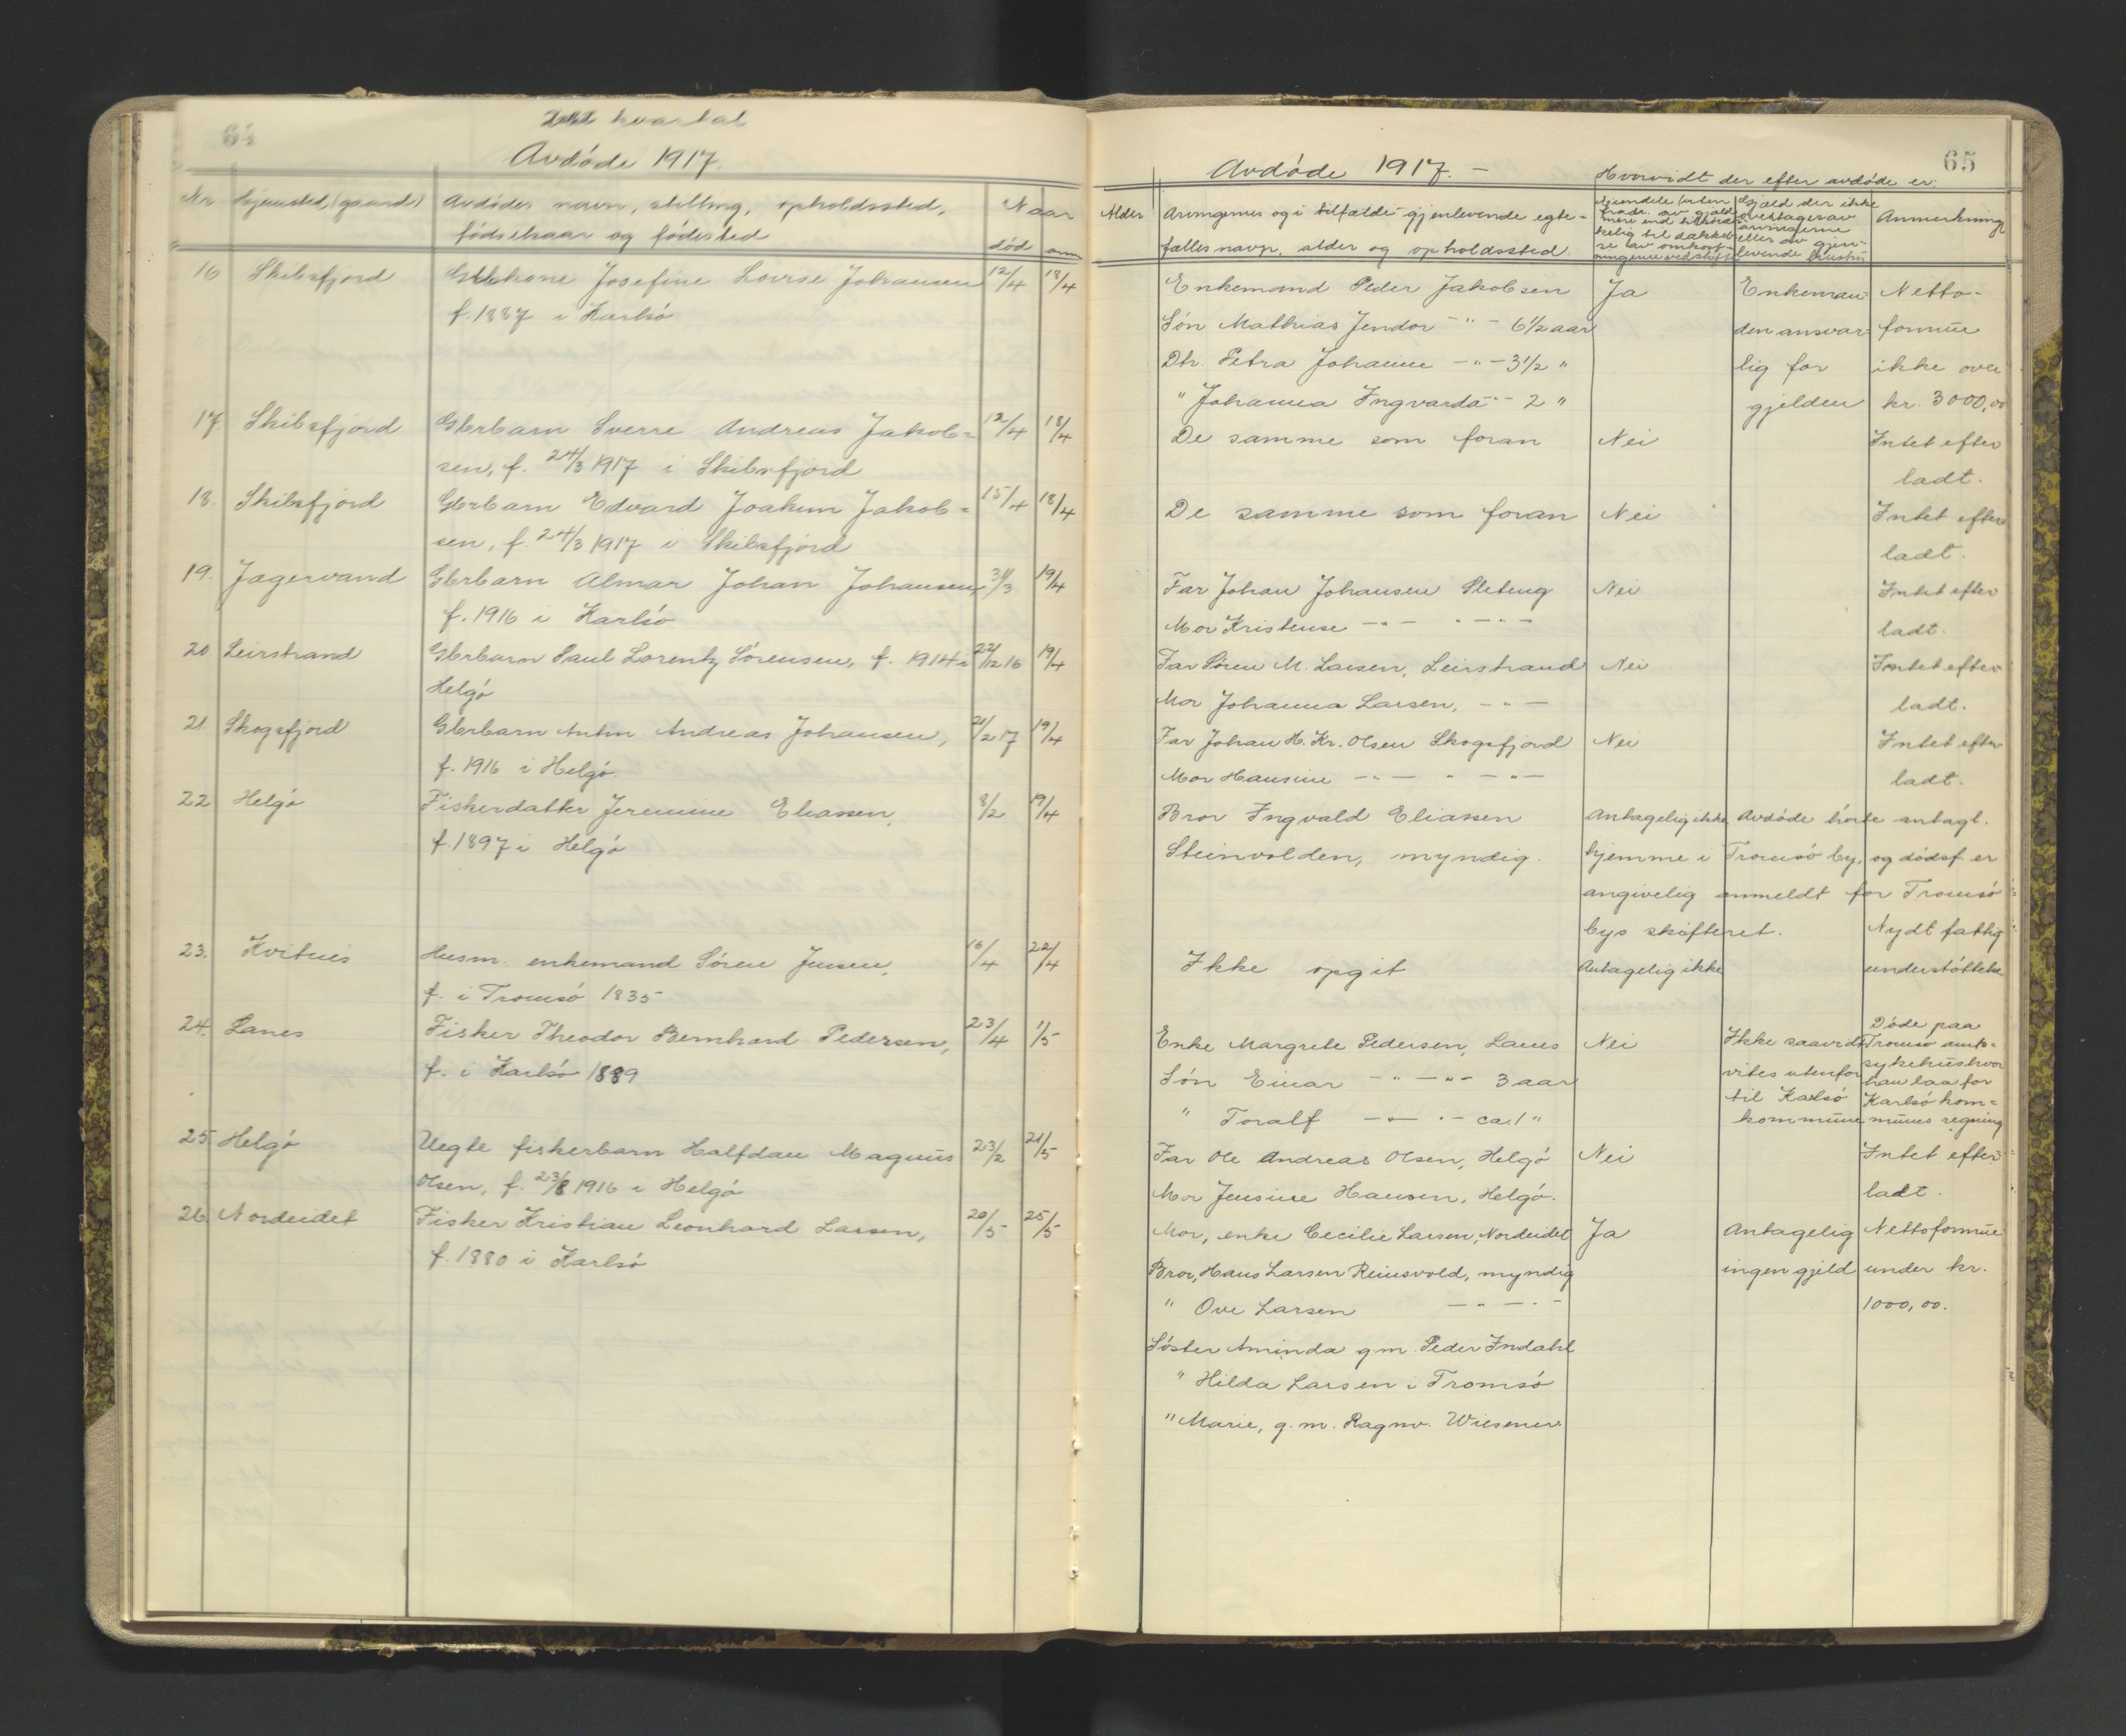 64
2det kvartal
Avdöde 1917.
Nr Hjemsted (gaard) Avdödes navn, stilling, opholdssted, Naar
födselsaar og födested död anm
16 Skibsfjord Gbrkone Josefine Lovise Johansen 12/4 18/4
f. 1887 i Karlsö
17 Skibsfjord Gbrbarn Sverre Andreas Jakob= 12/4 18/4
sen, f. 24/3 1917 i Skibsfjord
18. Skibsfjord Gbrbarn Edvard Joakim Jakob= 15/4 18/4
sen, f. 24/3 1917 i Skibsfjord
19. Jægervand Gbrbarn Almar Johan Johansen, 31/3 19/4
f. 1916 i Karlsö
20 Leirstrand Gbrbarn Paul Lorentz Sörensen, f. 1914 i 22/12 16 19/4
Helgö
21 Skogsfjord Gbrbarn Anton Andreas Johansen, 21/2 17 19/4
f. 1916 i Helgö
22 Helgö Fiskerdatter Jermine Eliassen, 8/2 19/4
f. 1897 i Helgö
23. Kvitnes Husm. enkemand Sören Jensen, 16/4 22/4
f. i Tromsö 1835
24. Lanes Fisker Theodor Bernhard Pedersen, 23/4 1/5
f. i Karlsö 1889
25 Helgö Uegte fiskerbarn Halfdan Magnus 23/2 21/5
Olsen, f. 23/8 1916 i Helgö
26. Nordeidet Fisker Kristian Leonhard Larsen, 20/5 25/5
f. 1880 i Karlsö
65
Avdöde 1917. —
Hvorvidt der efter avdöde er:
Alder Arvingernes og i tilfælde gjenlevende egte-
fælles navn, alder og opholdssted.
Eiendele (uten
frad. av gjæld)
mere end tilstræk-
kelig til dække
se av omkost-
ningerne ved skifte
Gjæld der ikke
overtages av
arvingerne
eller av gjen-
levende
Anmerkning
Enkemand Peder Jakobsen Ja Enkeman- Netto-
Sön Mathias Jendor -"- 6 1/2 aar den ansvar- formue
Dtr. Petra Johanne -"- 3 1/2 " lig for ikke over
" Johanna Ingvarda -"- 2 " gjelden kr. 3000,00
De samme som foran Nei Intet efter
ladt.
De samme som foran Nei Intet efter
ladt.
Far Johan Johansen Sleteng Nei Intet efter
Mor Kristense -"- -"- ladt.
Far Sören M. Larsen, Leirstrand Nei Intet efter
Mor Johanna Larsen, -"- ladt.
Far Johan H. Kr. Olsen Skogsfjord Nei Intet efter
Mor Hansine -"- " -"- ladt.
Bror Ingvald Eliassen Antagelig ikke Avdöde hörte antagl.
Steinvolden, myndig. hjemme i Tromsö by, og dödsf. er
angivelig anmeldt for Tromsö
bys skifteret. Nydt fattig
Ikke opgit Antagelig ikke understöttelse
Enke Margrete Pedersen, Lanes Nei
Sön Einar -"- -"- 3 aar
" Toralf -"- -"- ca. 1 "
Ikke saavidt
vites utenfor
til Karlsö
kommune
Döde paa
Tromsö amts-
sykehus hvor
han laa for
Karlsö kom=
munes regning
Far Ole Andreas Olsen, Helgö Nei Intet efter-
Mor Jensine Hansen, Helgö. ladt.
Mor, enke Cecilie Larsen, Nordeidet Ja Antagelig Nettoformue
Bror, Hans Larsen Reinsvold, myndig ingen gjeld under kr.
" Ove Larsen -"- 1000,00.
Söster Aminda g.m. Peder Indahl
" Hilda Larsen i Tromsö
" Marie, g.m. Ragnv. Wiesener